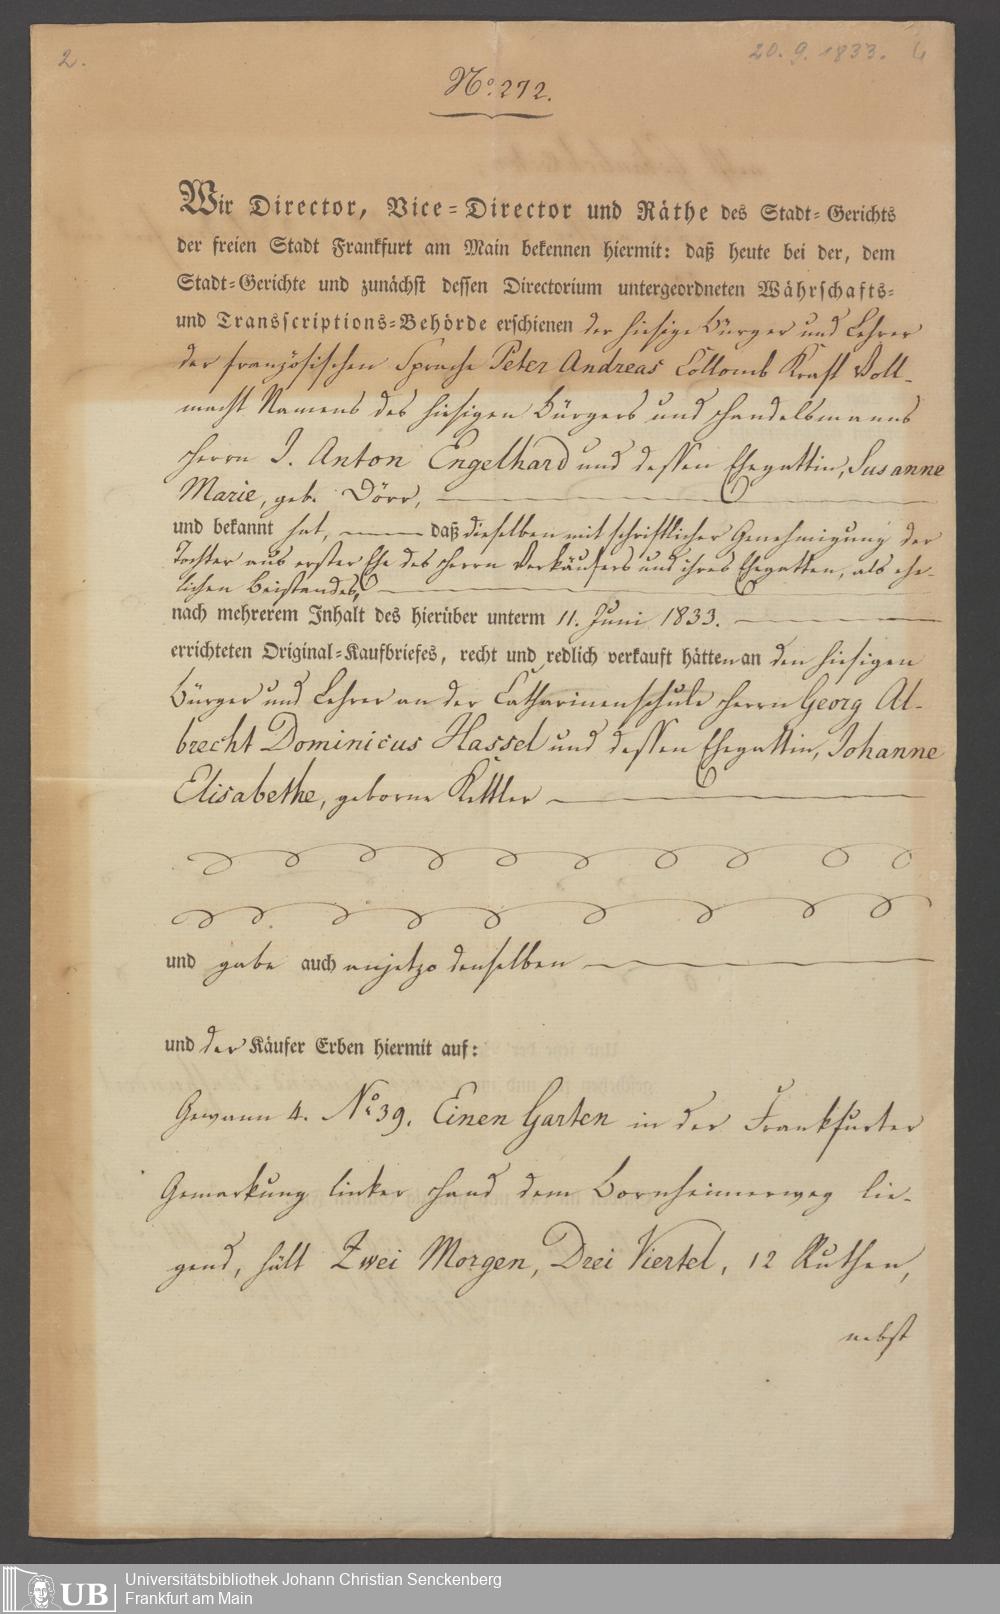 2.
20. 9. 1833.
No. 272.
Wir Director, Vice-Director und Räthe des Stadt-Gerichts
der freien Stadt Frankfurt am Main bekennen hiermit: daß heute bei der, dem
Stadt-Gerichte und zunächst dessen Directorium untergeordneten Währschafts-
und Transscriptions-Behörde erschienen der hiesige Bürger und Lehrer
der französischen Sprache Peter Andreas Collomb Kraft Voll-
macht Namens des hiesigen Bürgers und Handelsmanns
Herrn J. Anton Engelhard und dessen Ehegattin, Susanne
Marie, geb. Dörr,
und bekannt hat, daß dieselben mit schriftlicher Genehmigung der
Tochter aus erster Ehe des Herrn Verkäufers und ihres Ehegatten, als ehe-
lichen Beistandes,
nach mehrerem Inhalt des hierüber unterm 11. Juni 1833.
errichteten Original-Kaufbriefes, recht und redlich verkauft hätten an den hiesigen
Bürger und Lehrer an der Catharinenschule Herrn Georg Al-
brecht Dominicus Hassel und dessen Ehegattin, Johanne
Elisabethe, geborne Kettler
und gabe auch anjetzo denselben
und der Käufer Erben hiermit auf:
Gewann 4. No. 39. Einen Garten in der Frankfurter
Gemarkung linker Hand dem Bornheimerweg lie-
gend, hält Zwei Morgen, Drei Viertel, 12 Ruthen,
nebst
UB Universitätsbibliothek Johann Christian Senckenberg
Frankfurt am Main